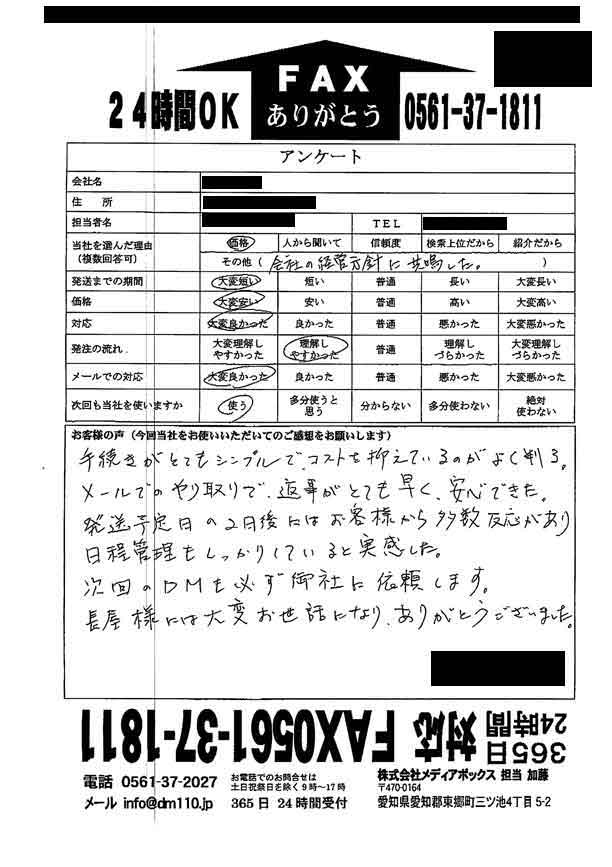 FAX
ありがとう
24時間OK
0561-37-1811
アンケート
会社名
住　所
担当者名 TEL
当社を選んだ理由
（複数回答可）
価格 人から聞いて 信頼度 検索上位だから 紹介だから
その他（会社の経営方針に共鳴した。）
発送までの期間 大変短い 短い 普通 長い 大変長い
価格 大変安い 安い 普通 高い 大変高い
対応 大変良かった 良かった 普通 悪かった 大変悪かった
発注の流れ 大変理解しやすかった 理解しやすかった 普通 理解しづらかった 大変理解しづらかった
メールでの対応 大変良かった 良かった 普通 悪かった 大変悪かった
次回も当社を使いますか 使う 多分使うと思う 分からない 多分使わない 絶対使わない
お客様の声（今回当社をお使いいただいてのご感想をお願いします）
手続きがとてもシンプルで、コストを抑えているのがよく判る。
メールでのやり取りで、返事がとても早く、安心できた。
発送予定日の2日後にはお客様から多数反応があり
日程管理もしっかりしていると実感した。
次回のDMも必ず御社に依頼します。
長屋様には大変お世話になり、ありがとうございました。
365日
24時間
対応 FAX0561-37-1811
電話 0561-37-2027
メール info@dm110.jp
お電話でのお問合せは
土日祝祭日を除く9時〜17時
365日 24時間受付
株式会社メディアボックス 担当 加藤
〒470-0164
愛知県愛知郡東郷町三ツ池4丁目5-2